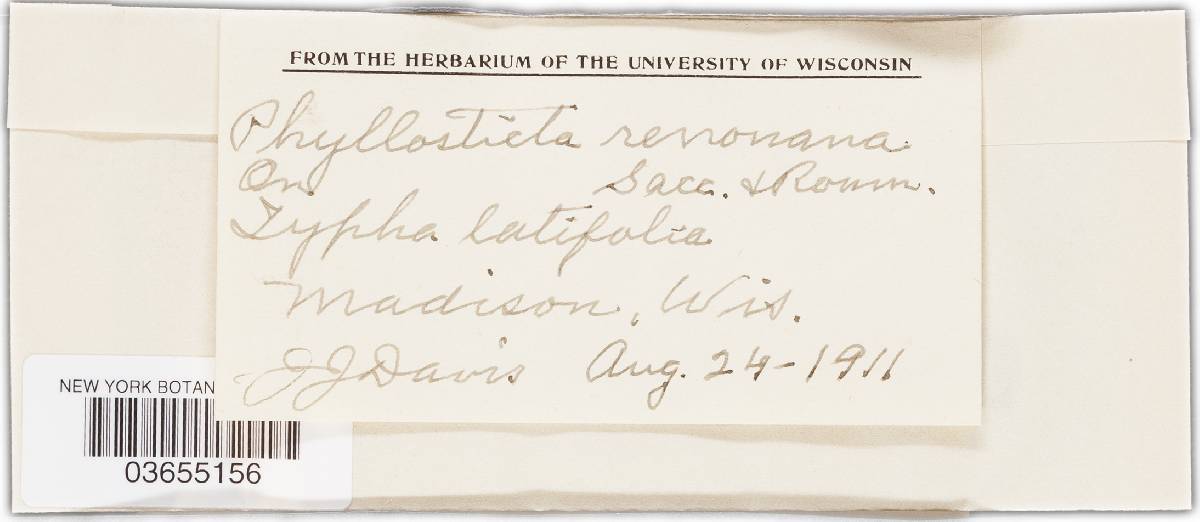 FROM THE HERBARIUM OF THE UNIVERSITY OF WISCONSIN
Phyllosticta renouana
On Sacc. & Roum.
Typha latifolia
Madison, Wis.
JJDavis Aug. 24-1911
NEW YORK BOTAN
03655156